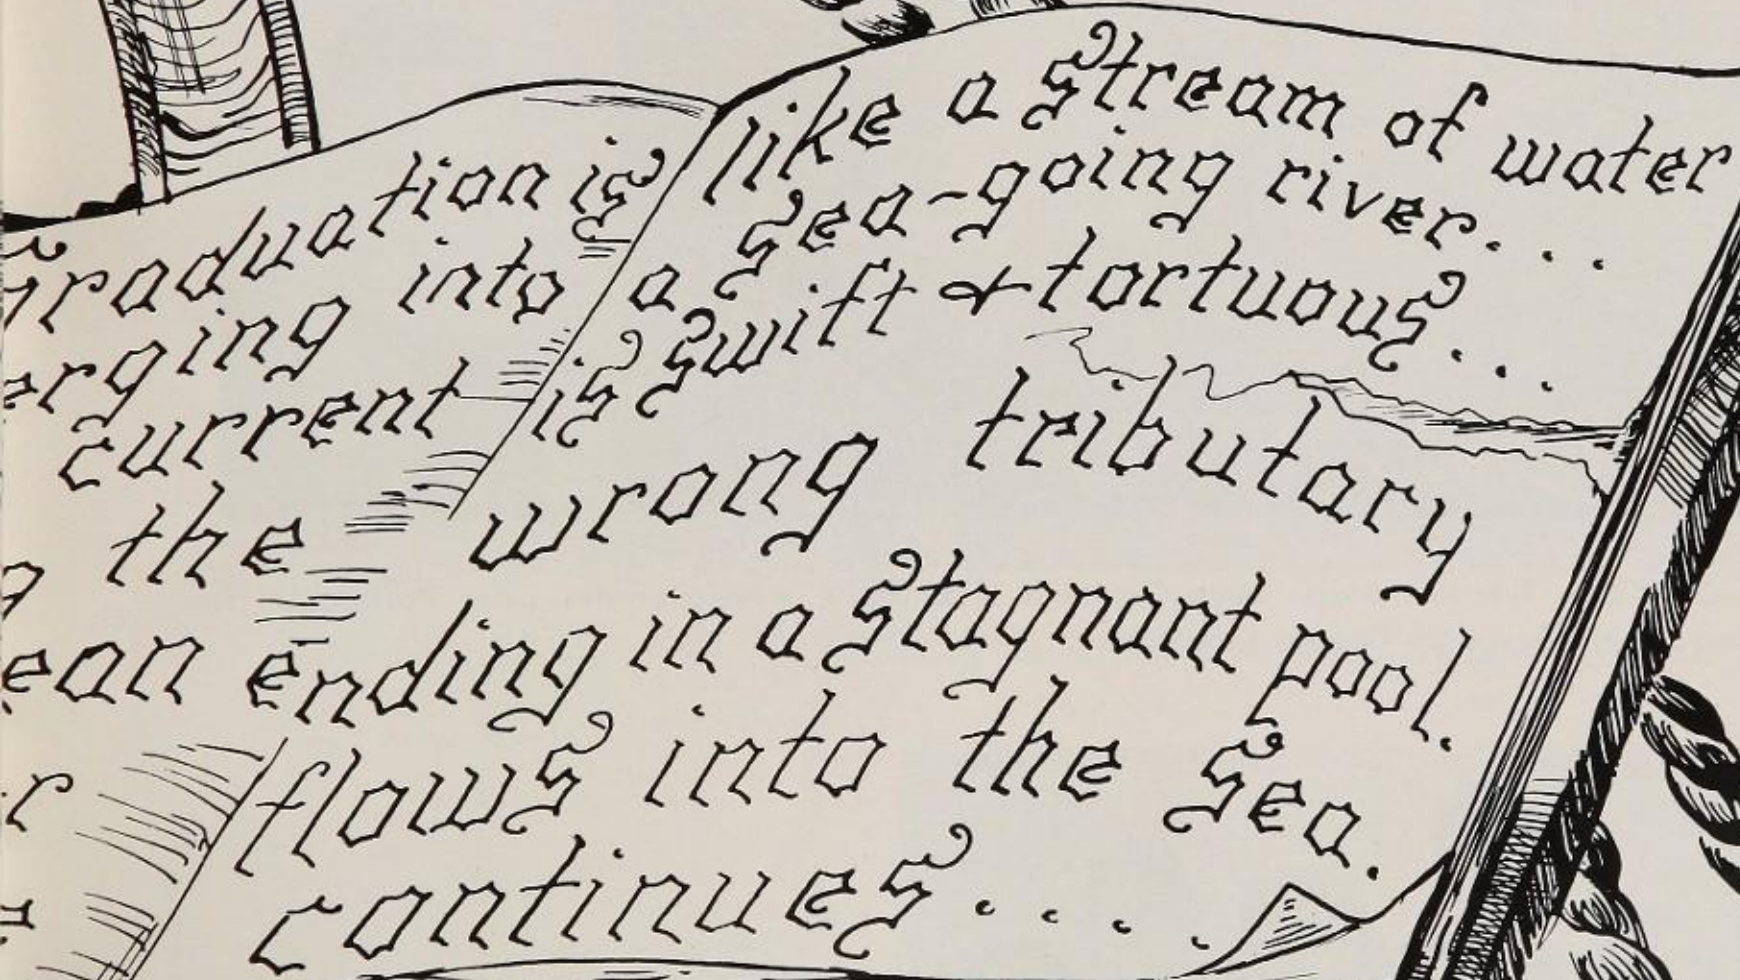 Graduation is like a Stream of water
erging into a Sea-going river...
current is Swift & tortuous...
g the wrong tributary
ean ending in a Stagnant pool.
r flows into the Sea.
continues....